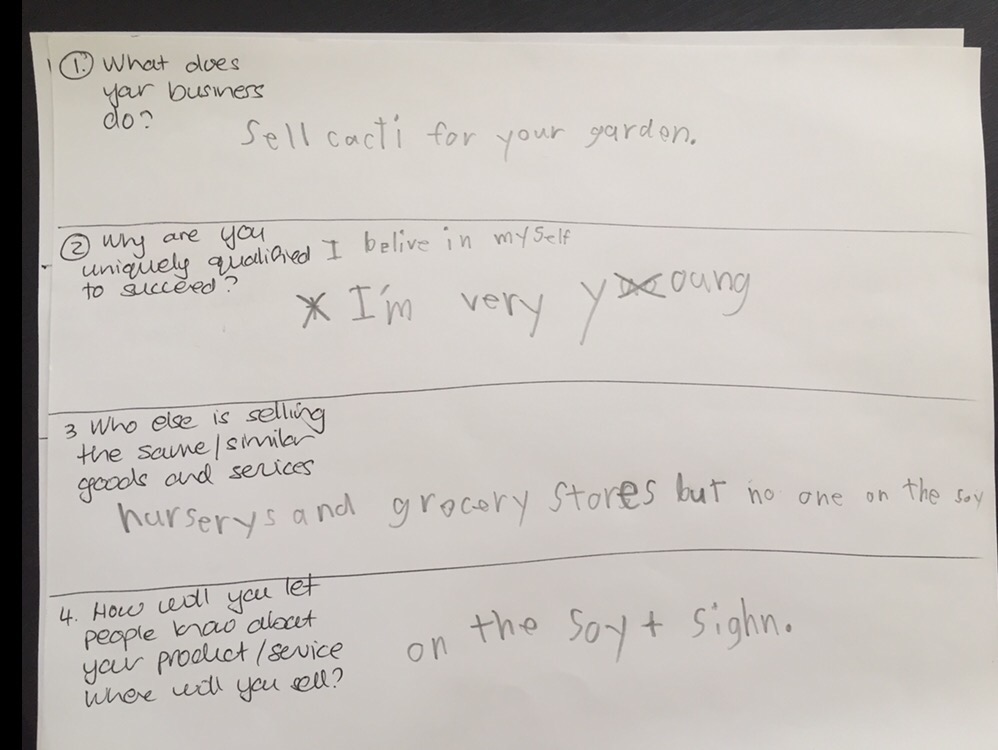 1. What does
your business
do?
Sell cacti for your garden.
2 Why are you
uniquely qualified
to succeed?
I belive in myself
* I'm very young
3 Who else is selling
the same/similar
goods and serices
nurserys and grocery stores but no one on the soy
4. How will you let
people know about
your product/service
Where will you sell?
on the Soy + Sighn.